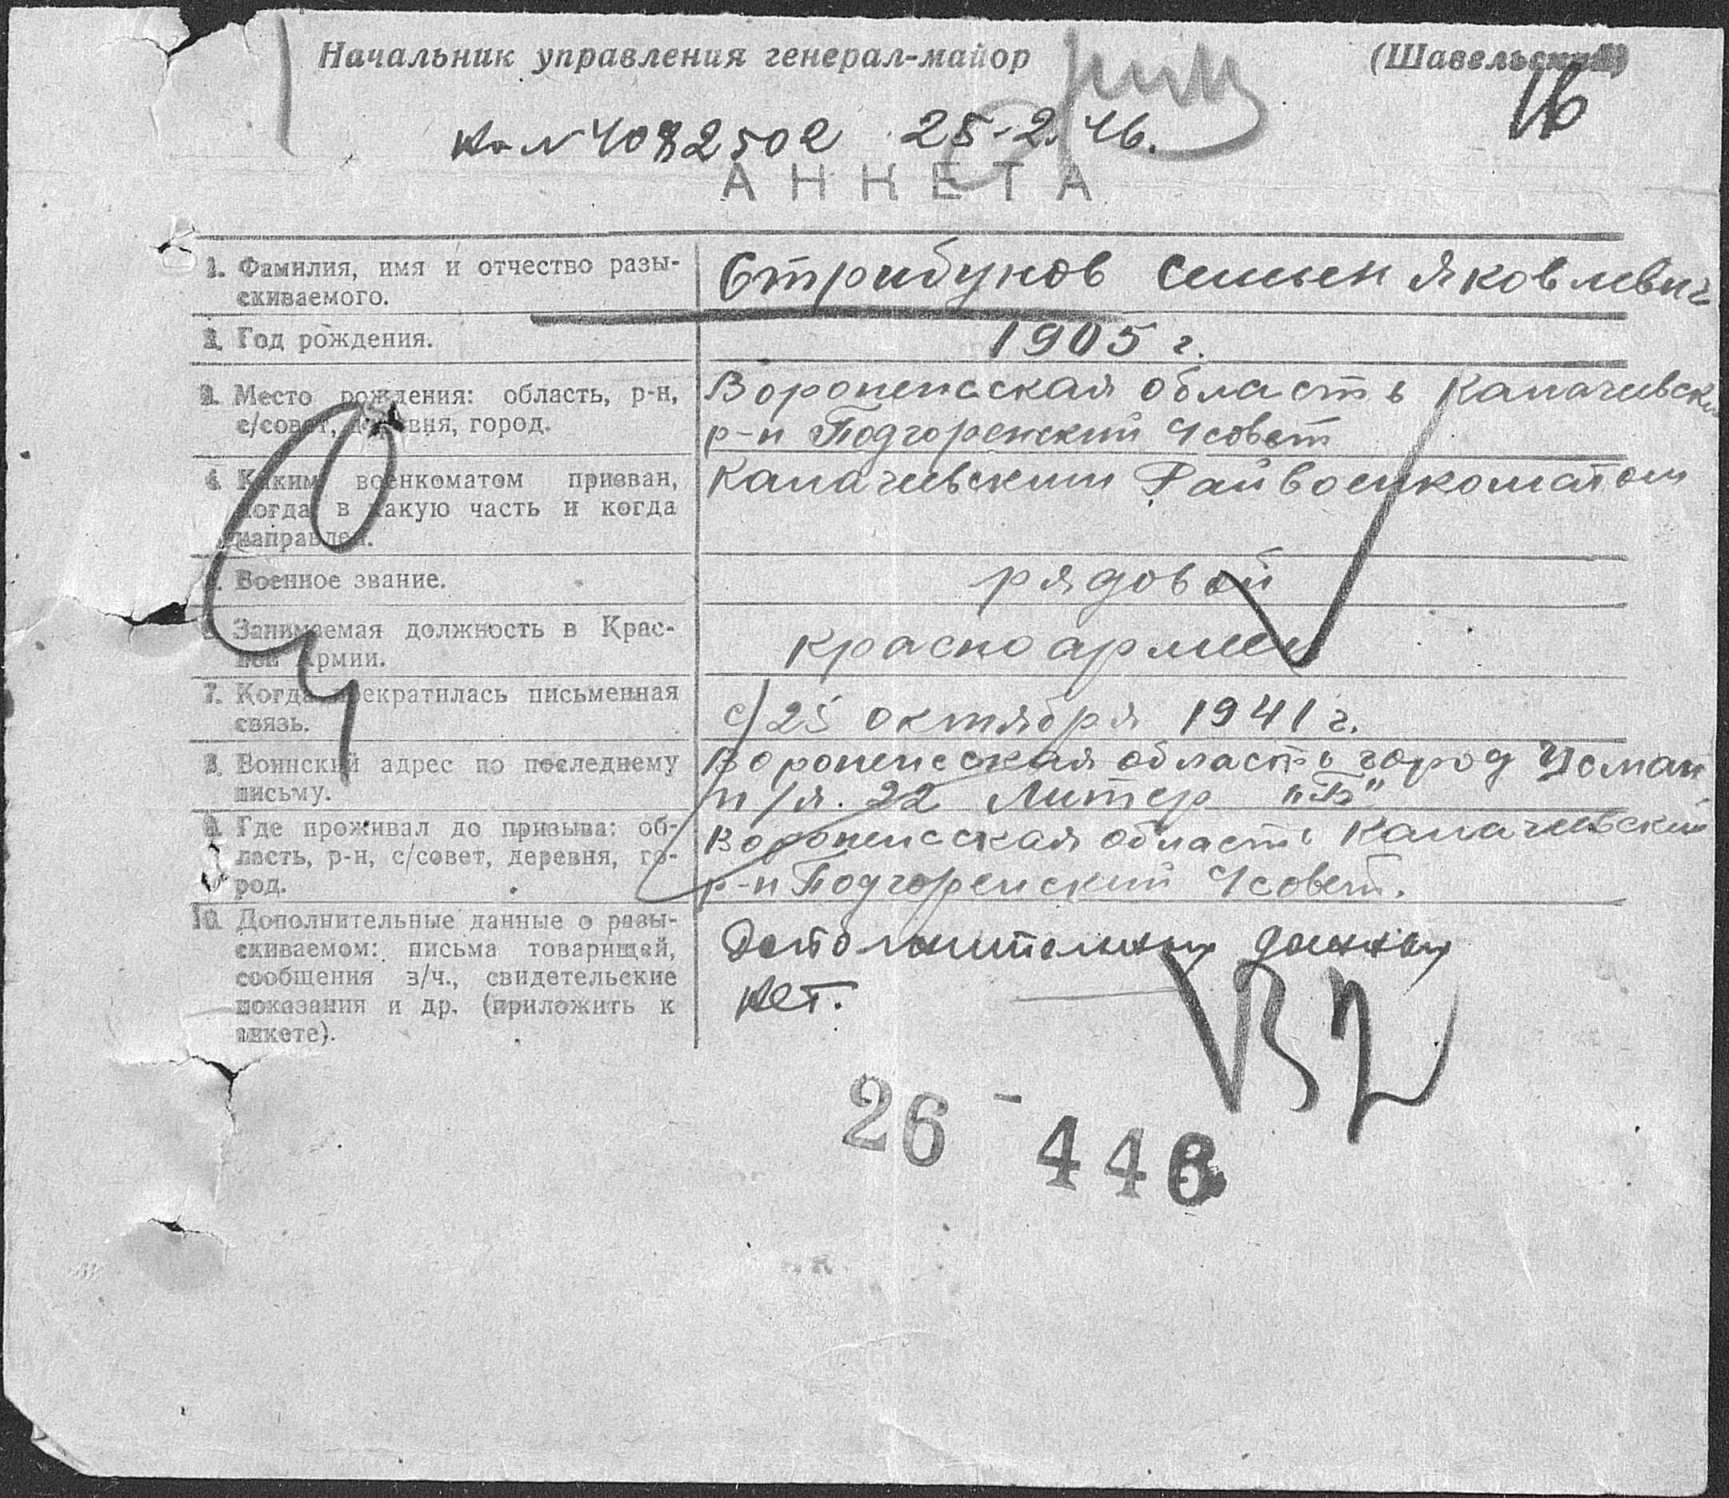 Начальник управления генерал-майор (Шавельский)
16
К-л N 4082502 25-2.46.
АНКЕТА
1. Фамилия, имя и отчество разы-
скиваемого.
Стрибунов Семьен Яковлевич
2. Год рождения.
1905 г.
3. Место рождения: область, р-н,
с/совет, деревня, город.
Воронежская область Калачевский
р-н Подгоренский С/совет
4. Каким военкоматом призван,
когда в какую часть и когда
направлен.
Калачевским Райвоенкоматом
5. Военное звание.
рядовой
6. Занимаемая должность в Крас-
ной Армии.
красноармеец
7. Когда прекратилась письменная
связь.
с/25 октября 1941 г.
8. Воинский адрес по последнему
письму.
Воронежсская область город Усмань
п/я. 22 Литер "Б"
9. Где проживал до призыва: об-
ласть, р-н, с/совет, деревня, го-
род.
Воронежсская область Калачевский
р-н Подгоренский С/совет.
10. Дополнительные данные о разы-
скиваемом: письма товарищей,
сообщения з/ч., свидетельские
показания и др. (приложить к
анкете).
Дополнительных данных
нет.
26 - 446